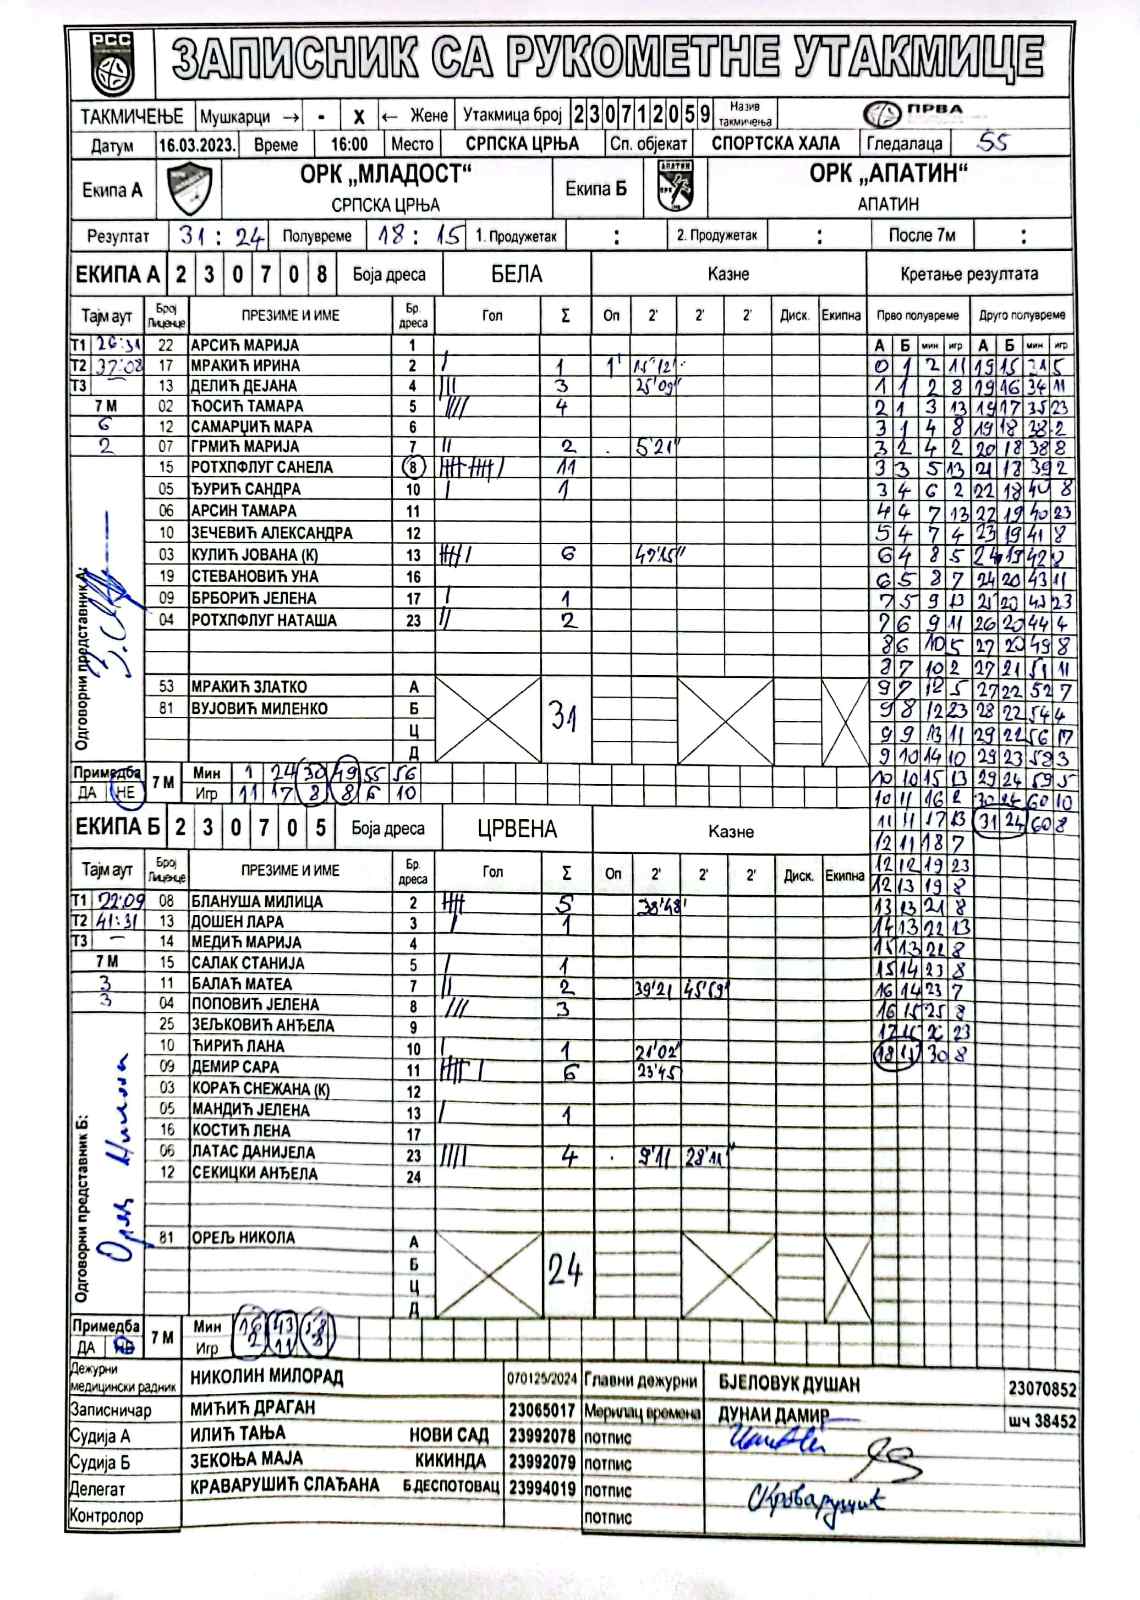 РСС
ЗАПИСНИК СА РУКОМЕТНЕ УТАКМИЦЕ
ТАКМИЧЕЊЕ Мушкарци → - X ← Жене Утакмица број 230712059 Назив такмичења ПРВА
Датум 16.03.2023. Време 16:00 Место СРПСКА ЦРЊА Сп. објекат СПОРТСКА ХАЛА Гледалаца 55
Екипа А ОРК „МЛАДОСТ“ СРПСКА ЦРЊА Екипа Б АПАТИН ОРК „АПАТИН“ АПАТИН
Резултат 31 : 24 Полувреме 18 : 15 1. Продужетак : 2. Продужетак : После 7м :
ЕКИПА А 2 3 0 7 0 8 Боја дреса БЕЛА Казне Кретање резултата
Тајм аут Број Лиценце ПРЕЗИМЕ И ИМЕ Бр. дреса Гол Σ Оп 2' 2' 2' Диск. Екипна Прво полувреме Друго полувреме
Т1 26:31 22 АРСИЋ МАРИЈА 1 А Б мин игр А Б мин игр
Т2 37:08 17 МРАКИЋ ИРИНА 2 / 1 1' 15'12" 0 1 2 11 19 15 31 5
Т3 – 13 ДЕЛИЋ ДЕЈАНА 4 /// 3 25'09" 1 1 2 8 19 16 34 11
7 М 02 ЋОСИЋ ТАМАРА 5 //// 4 2 1 3 13 19 17 35 23
6 12 САМАРЏИЋ МАРА 6 3 1 4 8 19 18 38 2
2 07 ГРМИЋ МАРИЈА 7 // 2 5'21" 3 2 4 2 20 18 38 8
15 РОТХПФЛУГ САНЕЛА 8 11 3 3 5 13 21 18 39 2
05 ЂУРИЋ САНДРА 10 / 1 3 4 6 2 22 18 40 8
06 АРСИН ТАМАРА 11 4 4 7 13 22 19 40 23
10 ЗЕЧЕВИЋ АЛЕКСАНДРА 12 5 4 7 4 23 19 41 8
03 КУЛИЋ ЈОВАНА (К) 13 6 49'15" 6 4 8 5 24 19 42 8
19 СТЕВАНОВИЋ УНА 16 6 5 8 7 24 20 43 11
09 БРБОРИЋ ЈЕЛЕНА 17 / 1 7 5 9 13 25 20 43 23
04 РОТХПФЛУГ НАТАША 23 // 2 7 6 9 11 26 20 44 4
8 6 10 5 27 20 49 8
8 7 10 2 27 21 51 11
53 МРАКИЋ ЗЛАТКО А 31 9 7 12 5 27 22 52 7
81 ВУЈОВИЋ МИЛЕНКО Б 9 8 12 23 28 22 54 4
Ц 9 9 13 11 29 22 56 17
Д 9 10 14 10 29 23 58 3
Одговорни представник А:
Примедба 7 М Мин 1 24 30 49 55 56 10 10 15 13 29 24 59 5
ДА НЕ Игр 11 17 8 8 6 10 10 11 16 2 30 24 60 10
ЕКИПА Б 2 3 0 7 0 5 Боја дреса ЦРВЕНА Казне 11 11 17 13 31 24 60 8
12 11 18 7
Тајм аут Број Лиценце ПРЕЗИМЕ И ИМЕ Бр. дреса Гол Σ Оп 2' 2' 2' Диск. Екипна 12 12 19 23
12 13 19 8
Т1 22:09 08 БЛАНУША МИЛИЦА 2 5 38'48" 13 13 21 8
Т2 41:31 13 ДОШЕН ЛАРА 3 / 1 14 13 22 13
Т3 – 14 МЕДИЋ МАРИЈА 4 15 13 22 8
7 М 15 САЛАК СТАНИЈА 5 / 1 15 14 23 8
3 11 БАЛАЋ МАТЕА 7 // 2 39'21 45'59" 16 14 23 7
3 04 ПОПОВИЋ ЈЕЛЕНА 8 /// 3 16 15 25 8
25 ЗЕЉКОВИЋ АНЂЕЛА 9 17 15 26 23
10 ЋИРИЋ ЛАНА 10 / 1 21'02" 18 15 30 8
09 ДЕМИР САРА 11 6 23'45
03 КОРАЋ СНЕЖАНА (К) 12
05 МАНДИЋ ЈЕЛЕНА 13 / 1
16 КОСТИЋ ЛЕНА 17
06 ЛАТАС ДАНИЈЕЛА 23 //// 4 9'11 28'11"
12 СЕКИЦКИ АНЂЕЛА 24
81 ОРЕЉ НИКОЛА А 24
Б
Ц
Д
Одговорни представник Б: Орељ Никола
Примедба 7 М Мин 16 43
ДА НЕ Игр 2 11 8
Дежурни медицински радник НИКОЛИН МИЛОРАД 070125/2024 Главни дежурни БЈЕЛОВУК ДУШАН 23070852
Записничар МИЋИЋ ДРАГАН 23065017 Мерилац времена ДУНАИ ДАМИР шч 38452
Судија А ИЛИЋ ТАЊА НОВИ САД 23992078 потпис
Судија Б ЗЕКОЊА МАЈА КИКИНДА 23992079 потпис
Делегат КРАВАРУШИЋ СЛАЂАНА Б.ДЕСПОТОВАЦ 23994019 потпис СКраварушић
Контролор потпис